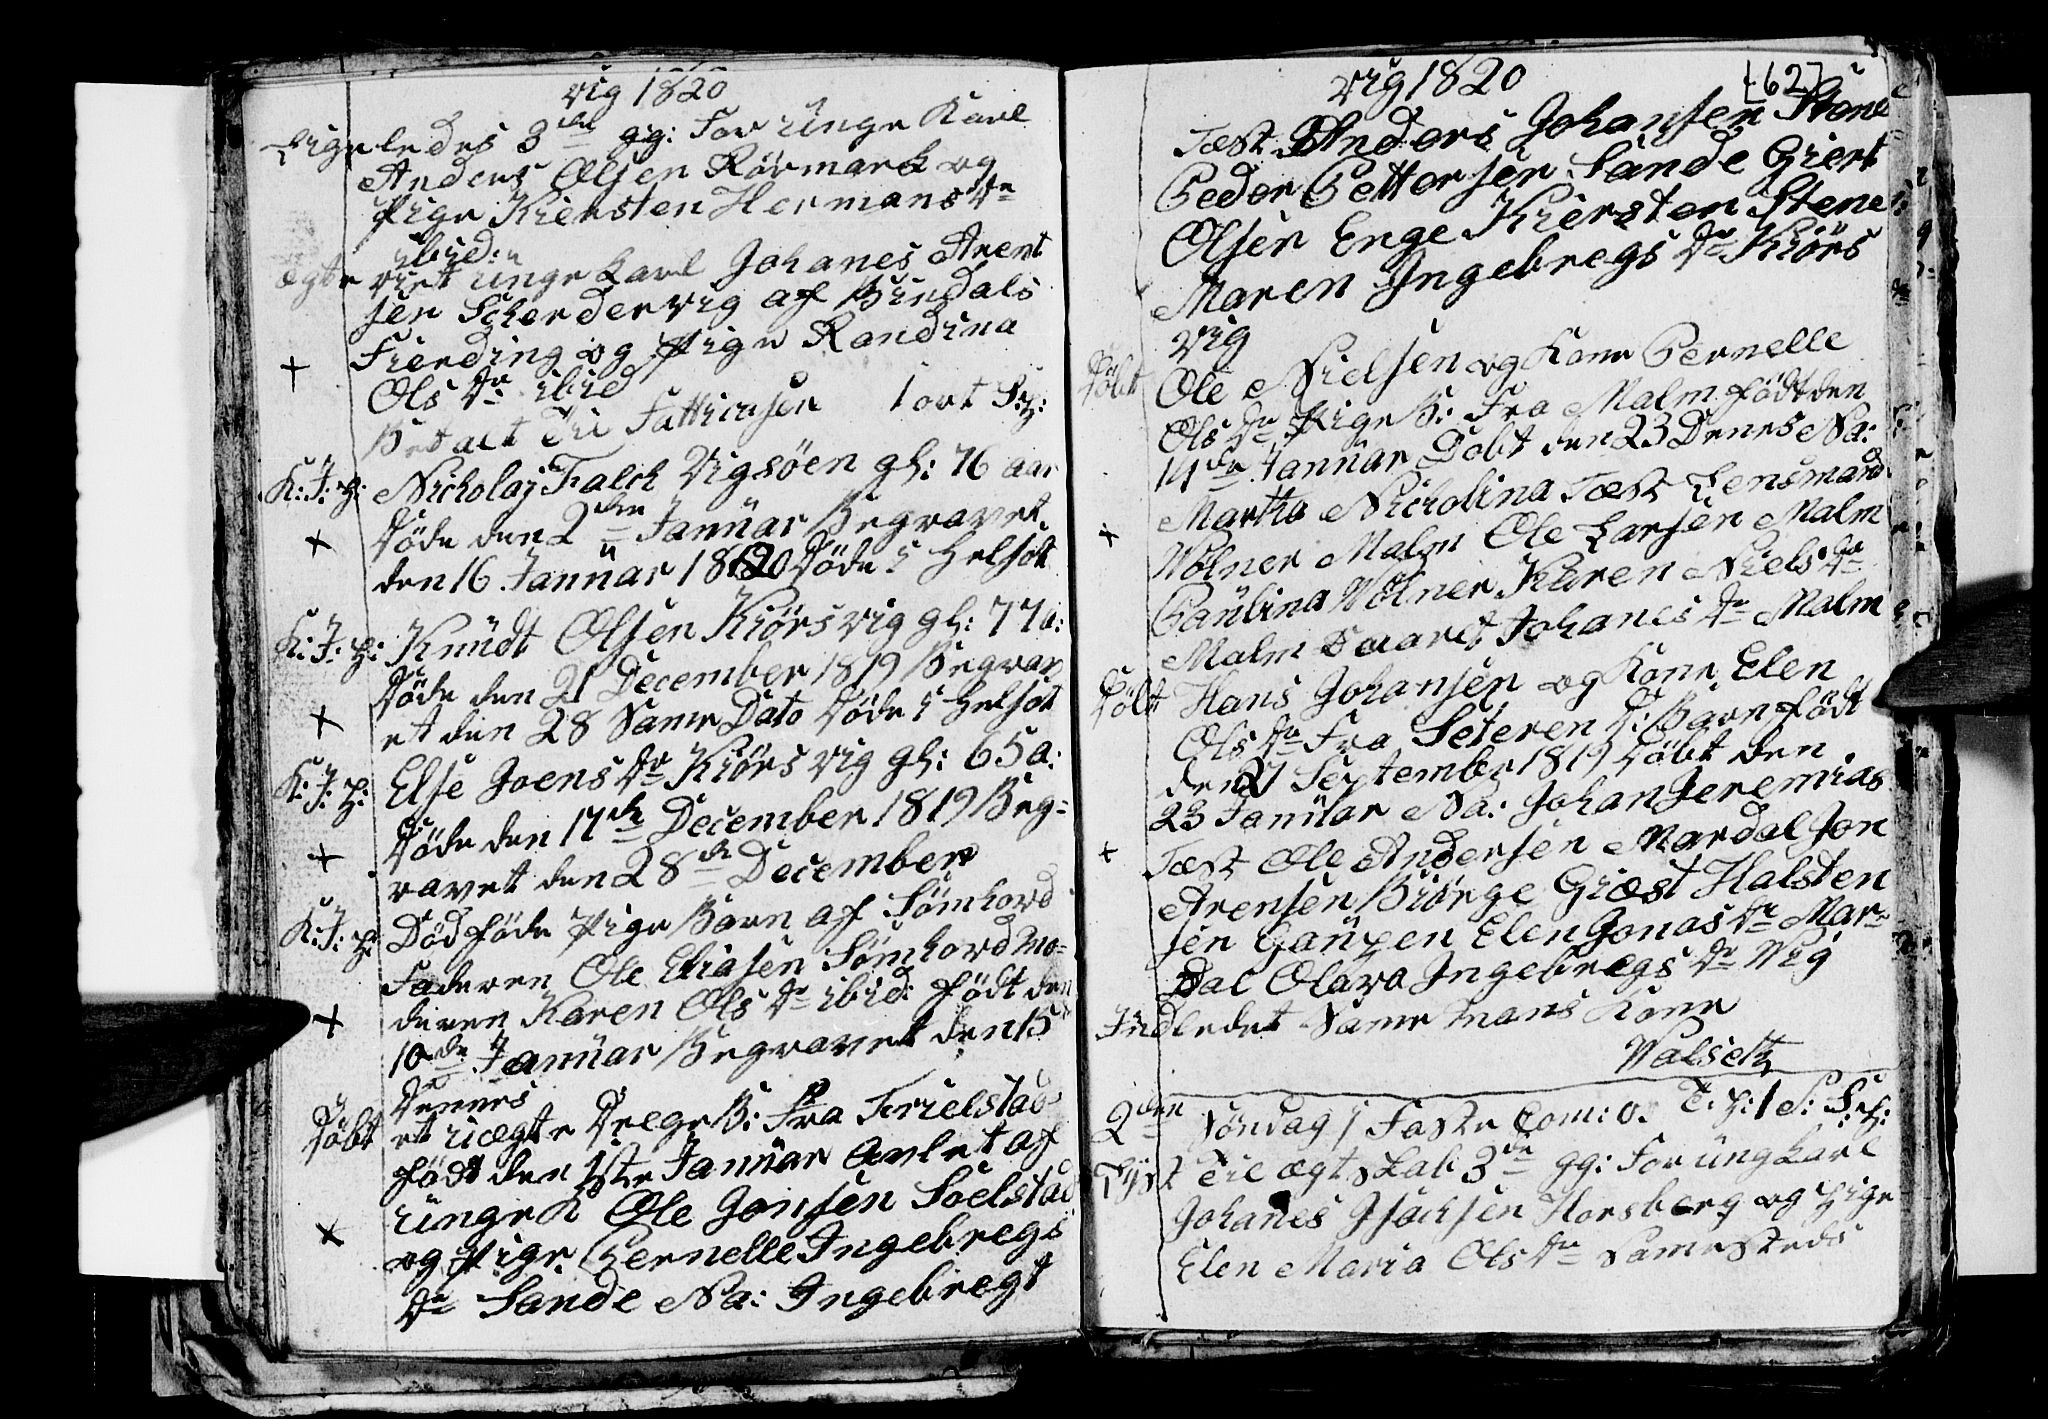 Vig 1820
Ligeledes 3de gg: For Unge Karl
Anders Olsen Rørmark og
Pige Kiersten Hermans Dr
ibid:
Ægte viet Unge Karl Johanes Arent
sen Scherdervig af Bindals
Fierding og Pige Randina
Ols Dr ibid
Betalt til Fattikasen 1 ort S:h:
K: J: P: Nicholaj Falch Vigsöen gl: 76 aar
Döde den 2den Januar Begravet
den 16 Januar 1820 Döde i Helsot
K: J: P: Knudt Olsen Kiörsvig gl: 77 a:
Döde den 21 December 1819 Begrav
et den 28 Same Dato Döde i Helsot
K: J: P: Else Joens Dr Kiörsvig gl: 65 a:
Döde den 17de December 1819 Beg=
ravet den 28de December
K: J: P: Död föde Pige Barn af Sömhord
Faderen Ole Eliasen Sömhord Mo=
deren Karen Ols Dr ibid: födt den
10de Januar Begravet den 15
Denes
Döbt et uægte Drege B: Fra Trielstad
födt den 1ste Januar Avlet af
Unge K Ole Jonsen Soelstad
og Pige Pernelle Ingebregs
Dr Sande Na: Ingebregt
Vig 1820
[62]
Test Anders Johansen Stene
Peder Pettersen Sande Giert
Olsen Enge Kiersten Stene
Maren Ingebregs Dr Kiörs
vig
Döbt Ole Nielsen og Kone Pernelle
Ols Dr Pige B: Fra Malm födt den
14de Januar Döbt den 23 Denes Na:
Martha Nicholina Test Lensmand
Wolner Malm Ole Larsen Malm
Paulina Wolner Karen Niels Dr
Malm Johanes Dr Malm
Döbt Hans Johansen og Kone Elen
Ols Dr Fra Seteren D: Barn födt
den 27 September 1819 Döbt den
23 Januar Na: Johan Jeremias
Test Ole Andersen Mardal Jon
Arensen Biörge Giæst Halsten
sen Gaupen Elen Jonas Dr Mar=
dal Olava Ingebregs Dr Vig
Indledet Same Mans Kone
Walseth
2den Söndag i Faste Com: 0. T: P: 1 S: S: h:
Lyst til ægtskab 3de gg: For Ung karl
Johanes Isachsen Horsberg og Pige
Elen Maria Ols Dr Samesteds